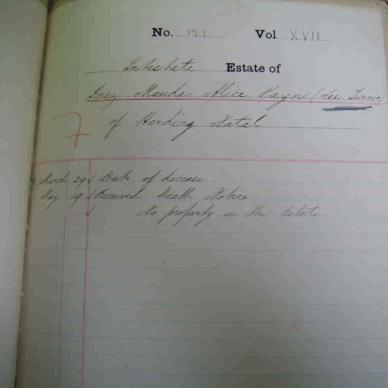 No. Vol XVII
Intestate Estate of
Inez Maude Alice (née Turner)
of Harding Natal
7
March 29 Date of decease
May 19 Received Death Notice
No property in the Estate